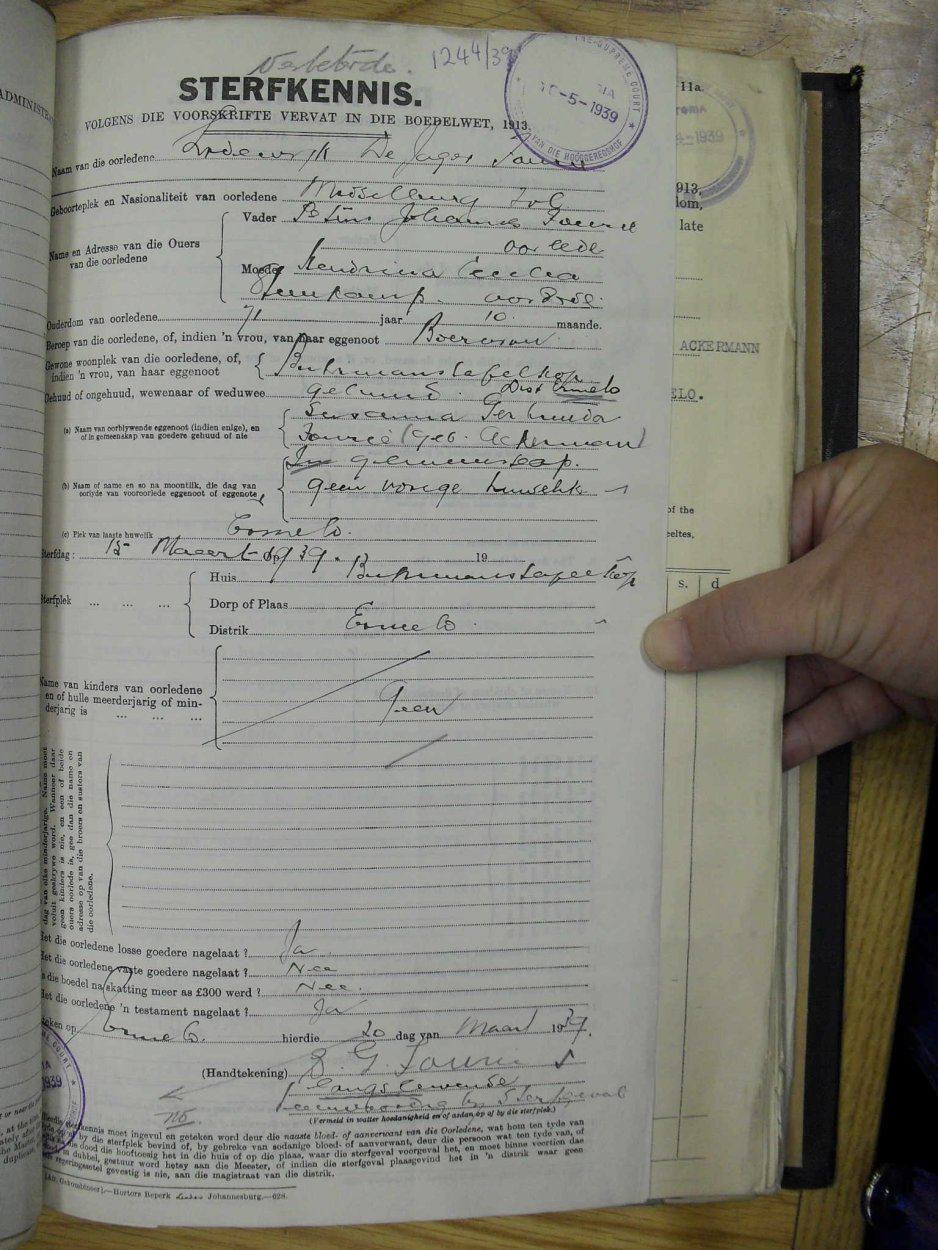 1244/39
STERFKENNIS.
VOLGENS DIE VOORSKRIFTE VERVAT IN DIE BOEDELWET, 1913.
SUPREME COURT
-5-1939
VAN DIE HOOGGEREGSHOF
Naam van die oorledene Lodewyk De Jager
Geboorteplek en Nasionaliteit van oorledene
Name en Adresse van die Ouers van die oorledene
Vader Johannes Fourie
oorlede
Moeder Hendrina Cecelia
oorlede.
Ouderdom van oorledene 71 jaar 10 maande.
Beroep van die oorledene, of, indien 'n vrou, van haar eggenoot Boervrou
Gewone woonplek van die oorledene, of, indien 'n vrou, van haar eggenoot Buhrmanstafelkop
Dist Ermelo
Gehuud of ongehuud, wewenaar of weduwee gehuud
(a) Naam van oorblywende eggenoot (indien enige), en of in gemeenskap van goedere gehuud of nie
Susanna Gertruida
Fourie (geb. Ackerman)
In gemeenskap.
(b) Naam of name en so na moontlik, die dag van oorlyde van vooroorlede eggenoot of eggenote
geen vorige huwelik
(c) Plek van laaste huwelik Ermelo.
Sterfdag: 15 Maart 1939. 19
Sterfplek ... ... ...
Huis Buhrmanstafelkop
Dorp of Plaas
Distrik Ermelo
Name van kinders van oorledene en of hulle meerderjarig of minderjarig is ... ... ...
Geen
dag van elke minderjarige. Name moet
voluit geskrywe word. Wanneer daar
geen kinders is nie, en een of beide
ouers oorlede is, gee dan die name en
adresse op van die broers en susters van
die oorledene.
Het die oorledene losse goedere nagelaat? Ja
Het die oorledene vaste goedere nagelaat? Nee
Is die boedel na skatting meer as £300 werd? Nee.
Het die oorledene 'n testament nagelaat? Ja
Ermelo. hierdie 20 dag van Maart 1939.
(Handtekening) S. G. Fourie
langslewende
teenwoordig by Sterfgeval
(Vermeld in watter hoedanigheid en of aldan op of by die sterfplek.)
NB.
kennis moet ingevul en geteken word deur die naaste bloed- of aanverwant van die Oorledene, wat hom ten tyde van
op of by die sterfplek bevind of, by gebreke van sodanige bloed- of aanverwant, deur die persoon wat ten tyde van, of
die dood die hooftoesig het in die huis of op die plaas, waar die sterfgeval voorgeval het, en moet binne veertien dae
in dubbel, gestuur word hetsy aan die Meester, of indien die sterfgeval plaasgevind het in 'n distrik waar geen
gevestig is nie, aan die magistraat van die distrik.
Hortors Beperk Johannesburg.—628.
11a.
1939
1913,
late
ACKERMANN
ELO.
of the
s. d.